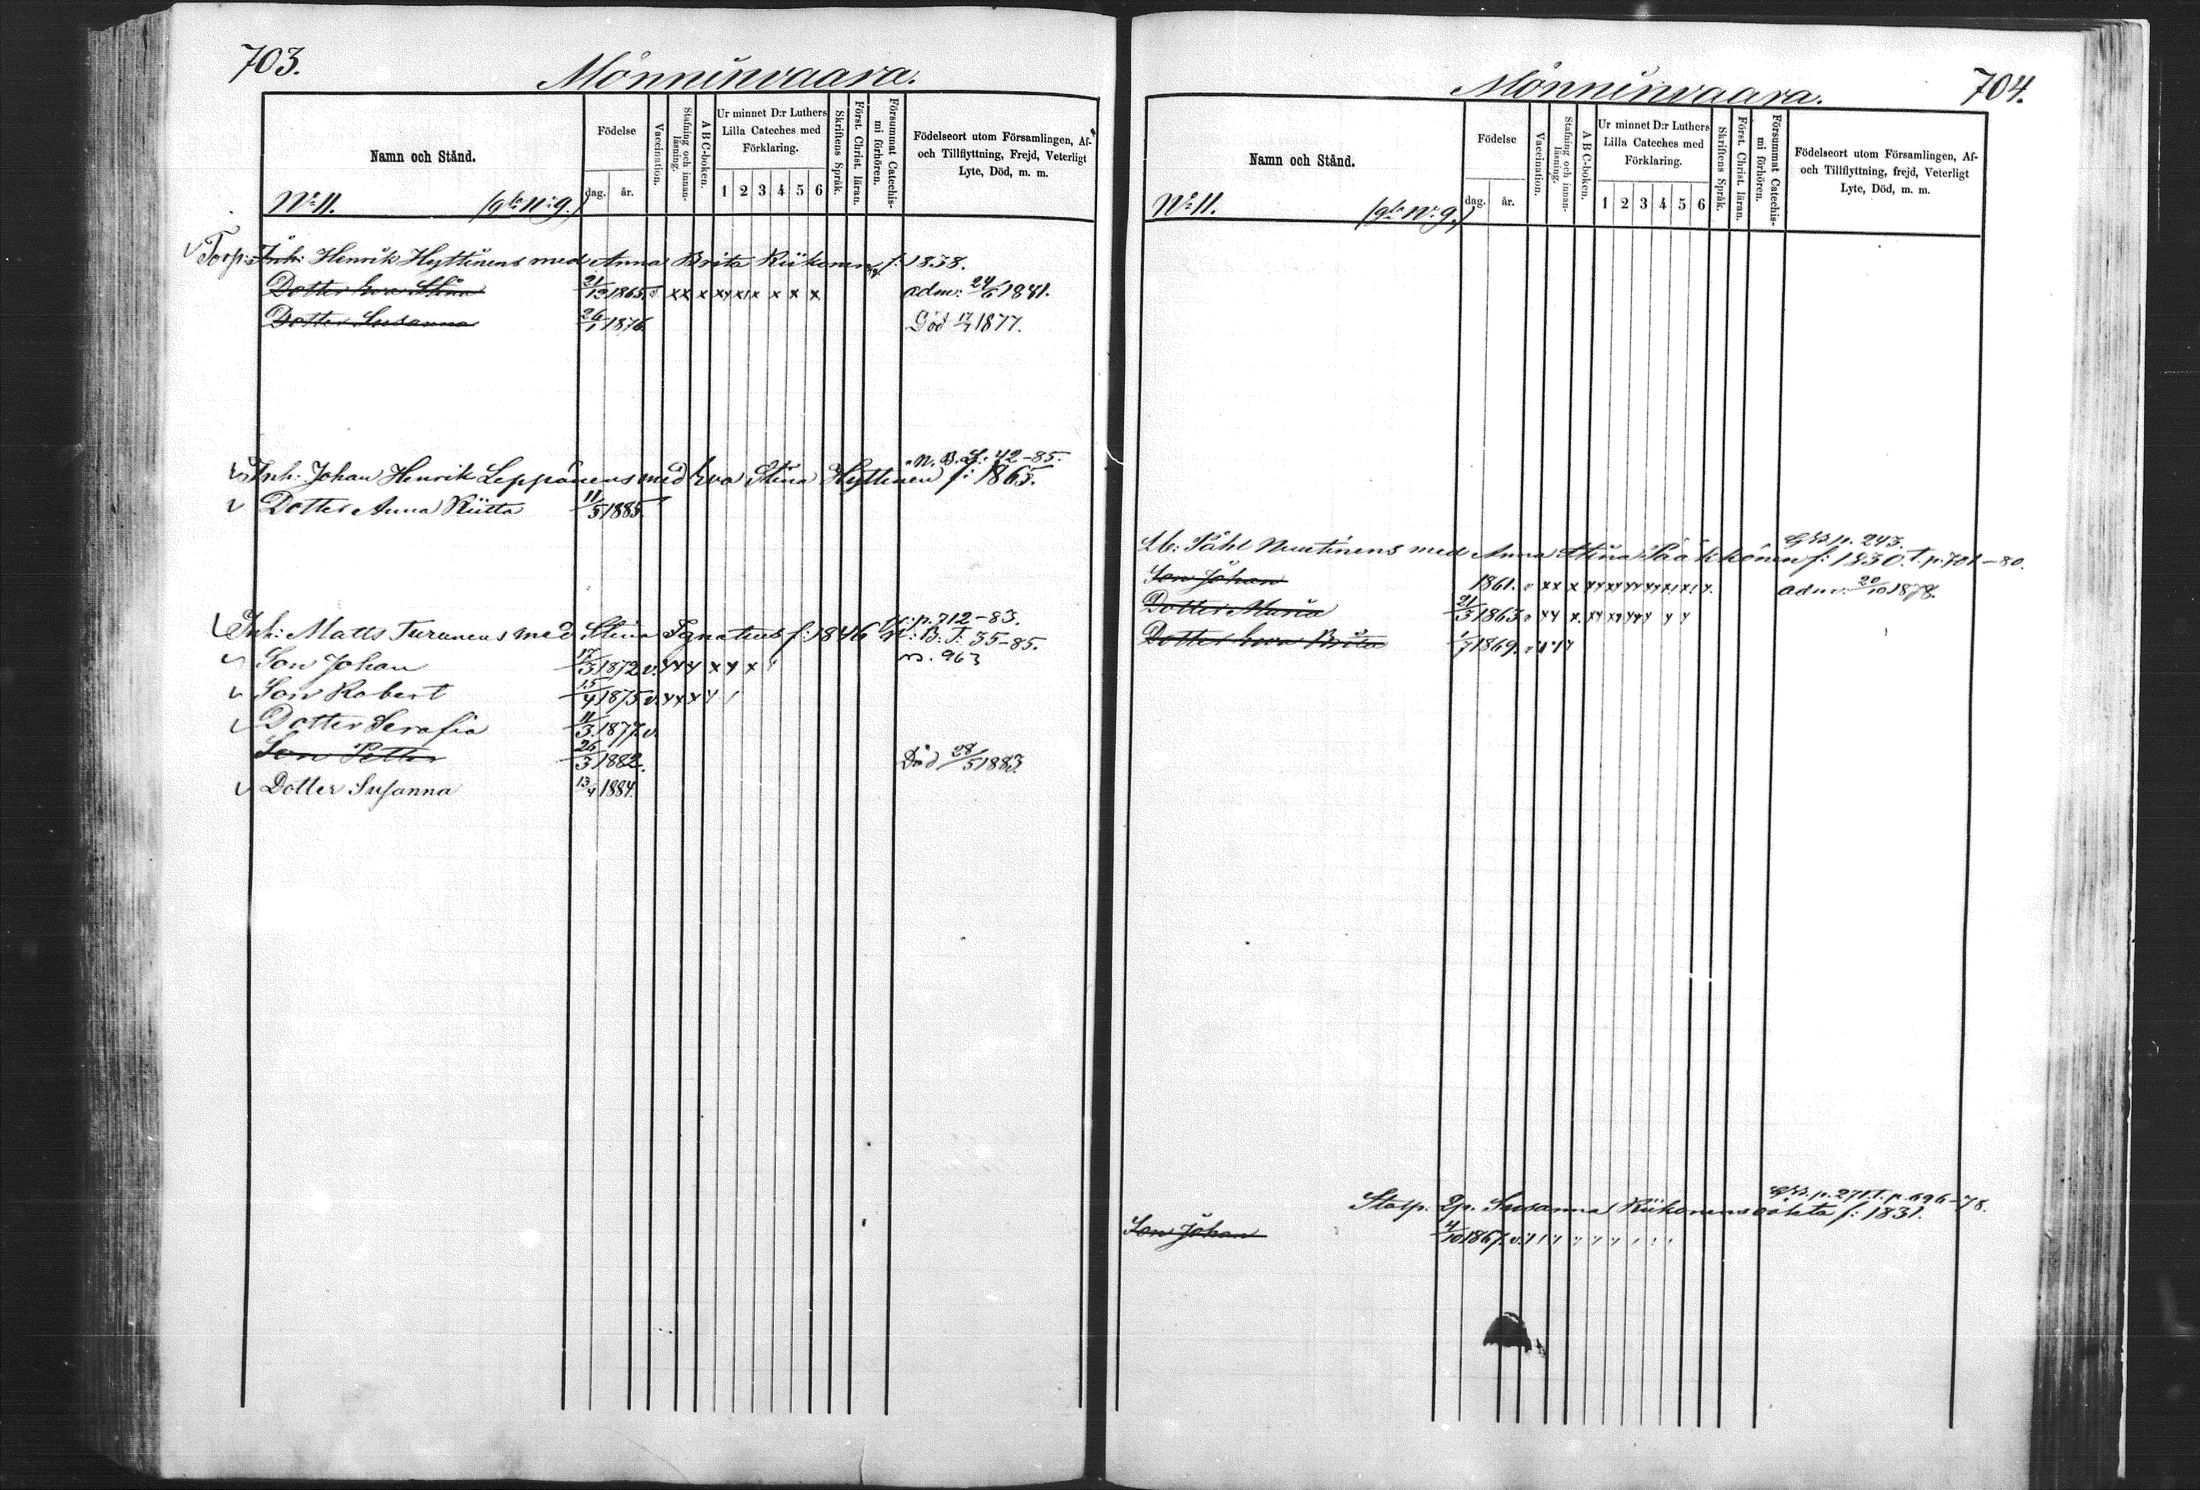 703.
Mönninvaara.
Namn och Stånd.
Födelse
dag. år.
Vaccination.
Stafning och innanläsning.
A B C-boken.
Ur minnet D:r Luthers Lilla Cateches med Förklaring.
1 2 3 4 5 6
Skriftens Språk.
Först. Christ. läran.
Försummat Catechismi förhören.
Födelseort utom Församlingen, Af- och Tillflyttning, Frejd, Veterligt Lyte, Död, m. m.
No 11. (gla No 9.)
Torp: Inh: Henrik Hyttinens med Anna Brita Riikonen f: 1838.
Dotter Eva Stina 21/12 1865. v xx x xx x x x x x adm: 24/6 1881.
Dotter Susanna 26/1 1876. Död 17/7 1877.
N. B. I: 42-85.
Inh: Johan Henrik Leppänens med Eva Stina Hyttinen f: 1865.
Dotter Anna Riitta 11/5 1885.
fr: p. 712-83.
Inh: Matts Turunens med Stina Ignatius f: 1846 N: B: I: 35-85.
Son Johan 17/5 1872 v. n. 963
Son Robert 15/4 1875 v.
Dotter Serafia 11/3 1877. v.
Son Petter 26/3 1882. Död 28/5 1883.
Dotter Susanna 13/4 1884.
704.
Mönninvaara.
Namn och Stånd.
Födelse
dag. år.
Vaccination.
Stafning och innanläsning.
A B C-boken.
Ur minnet D:r Luthers Lilla Cateches med Förklaring.
1 2 3 4 5 6
Skriftens Språk.
Först. Christ. läran.
Försummat Catechismi förhören.
Födelseort utom Församlingen, Af- och Tillflyttning, frejd, Veterligt Lyte, Död, m. m.
No 11. (gla No 9.)
GB. p. 243.
Påhl Nuutinens med Anna Stina Pääkkönen f: 1830. t. p. 701-80.
Son Johan 1861. v adm: 20/10 1878.
Dotter Maria 21/3 1863. v
Dotter Eva Brita 1/7 1869. v
GB. p. 271. t. p. 696-78.
Susanna Riikonens oäkta f: 1831.
Son Johan 4/10 1867. v.